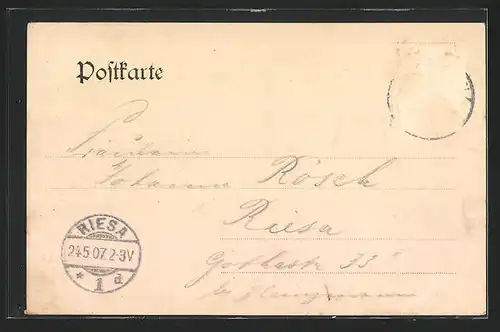 Postkarte
Fräulein
Johanne Rösch
Riesa
33
RIESA
24.5.07.2-3V
* 1 d